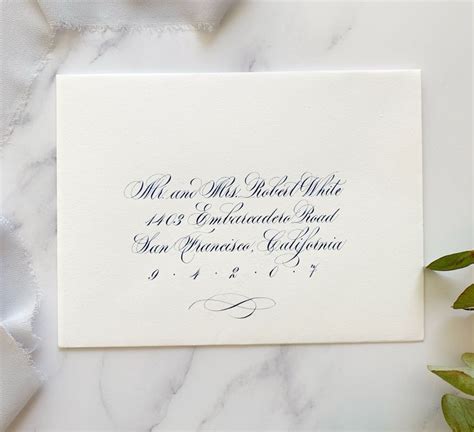 Mr. and Mrs. Robert White
1403 Embarcadero Road
San Francisco, California
9 · 4 · 2 · 0 · 7